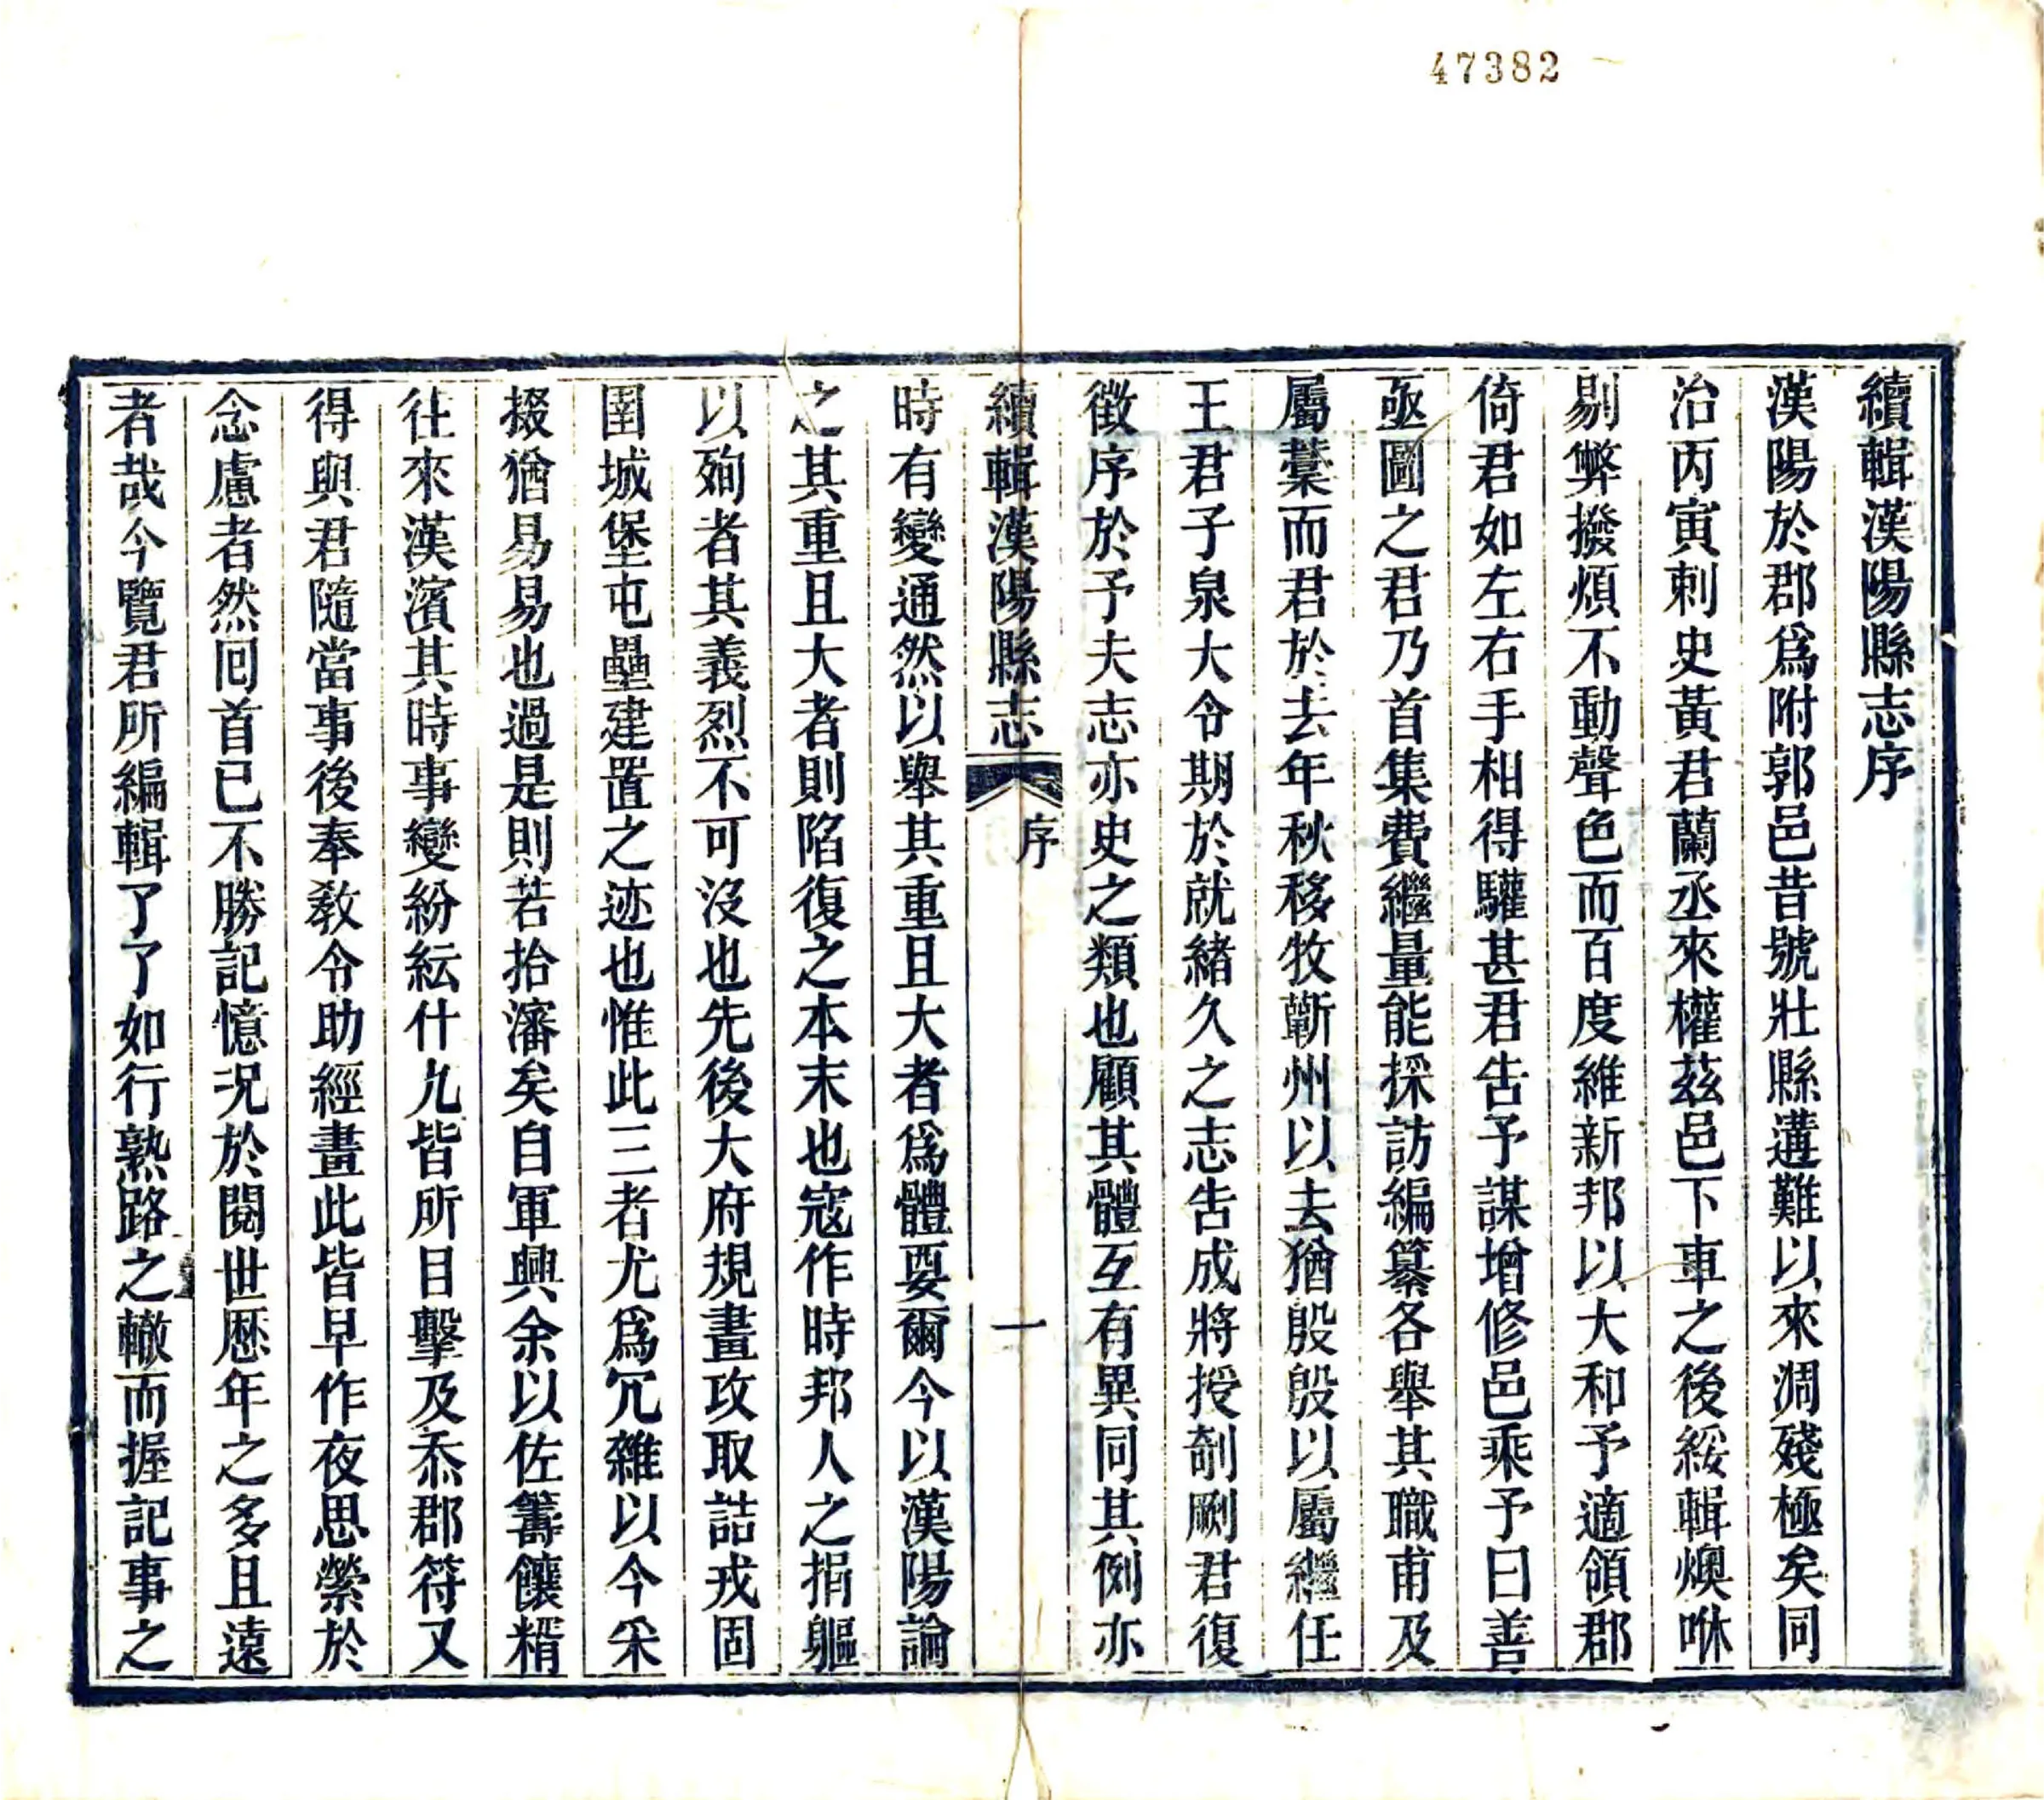 47382
續輯漢陽縣志序
漢陽於郡爲附郭邑昔號壯縣遘難以來凋殘極矣同
治丙寅刺史黃君蘭丞來權茲邑下車之後綏輯燠咻
剔弊撥煩不動聲色而百度維新邦以大和予適領郡
倚君如左右手相得驩甚君告予謀增修邑乘予曰善
亟圖之君乃首集費繼量能採訪編纂各舉其職甫及
屬藳而君於去年秋移牧蘄州以去猶殷殷以屬繼任
王君子泉大令期於就緒久之志告成將授剞劂君復
徵序於予夫志亦史之類也顧其體互有異同其例亦
續輯漢陽縣志 序 一
時有變通然以舉其重且大者爲體要爾今以漢陽論
之其重且大者則陷復之本末也寇作時邦人之捐軀
以殉者其義烈不可沒也先後大府規畫攻取詰戎固
圉城堡屯壘建置之迹也惟此三者尤爲冗雜以今采
掇猶易易也過是則若拾瀋矣自軍興余以佐籌饟糈
往來漢濱其時事變紛紜什九皆所目擊及忝郡符又
得與君隨當事後奉敎令助經畫此皆早作夜思縈於
念慮者然囘首已不勝記憶况於閱世歷年之多且遠
者哉今覽君所編輯了了如行熟路之轍而握記事之